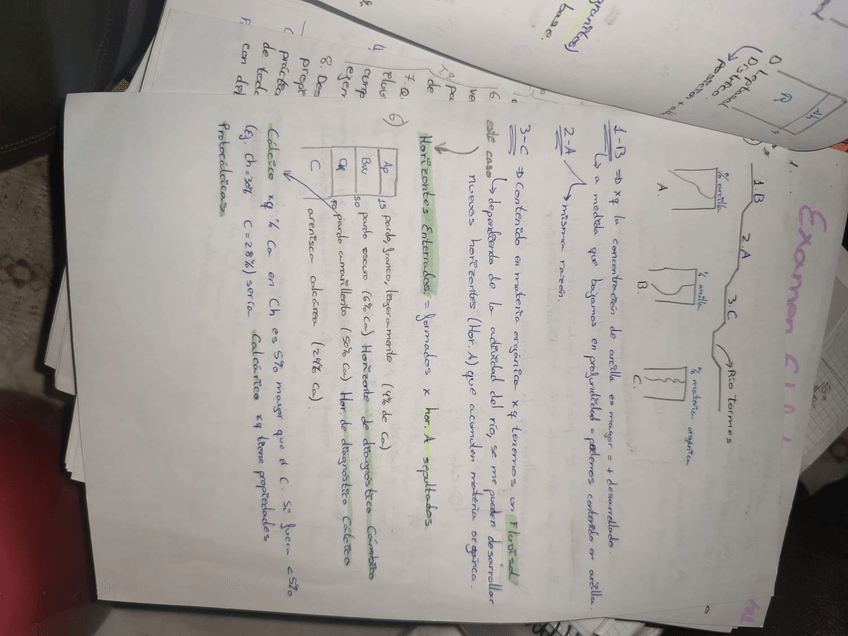 Examen
1B
2.A
3.C
Río Tormes
% arcilla
A.
% arcilla
B.
% materia orgánica
C.
1-B ⇒ xq la concentración de arcilla es mayor = + desarrollado
a medida que bajamos en profundidad = perdemos contenido en arcilla.
2-A
misma razón.
3-C ⇒ Contenido en materia orgánica xq tenemos un Fluvisol
este caso dependiendo de la actividad del río, se me pueden desarrollar
nuevos horizontes (Hor. A) que acumulen materia orgánica.
Horizontes Enterrados = formados x hor. A sepultados
6)
Ap 15 pardo, franco, ligeramente (4% de Ca)
Bw 50 pardo oscuro (6% Ca) Horizonte de diagnóstico Cámbico
Ck pardo amarillento (50% Ca) Hor. de diagnóstico Cálcico
C arenisca calcárea (24% Ca).
Cálcico xq % Ca en Ch es 5% mayor que el C. Si fuera <5%
(eg. Ch=30% C=28%) sería Calcárico xq tiene propiedades
Protocálcicas.
base.
R
Ah
6
7. Q
8. Des
de
ejem
prop
práctica
de todo
con del